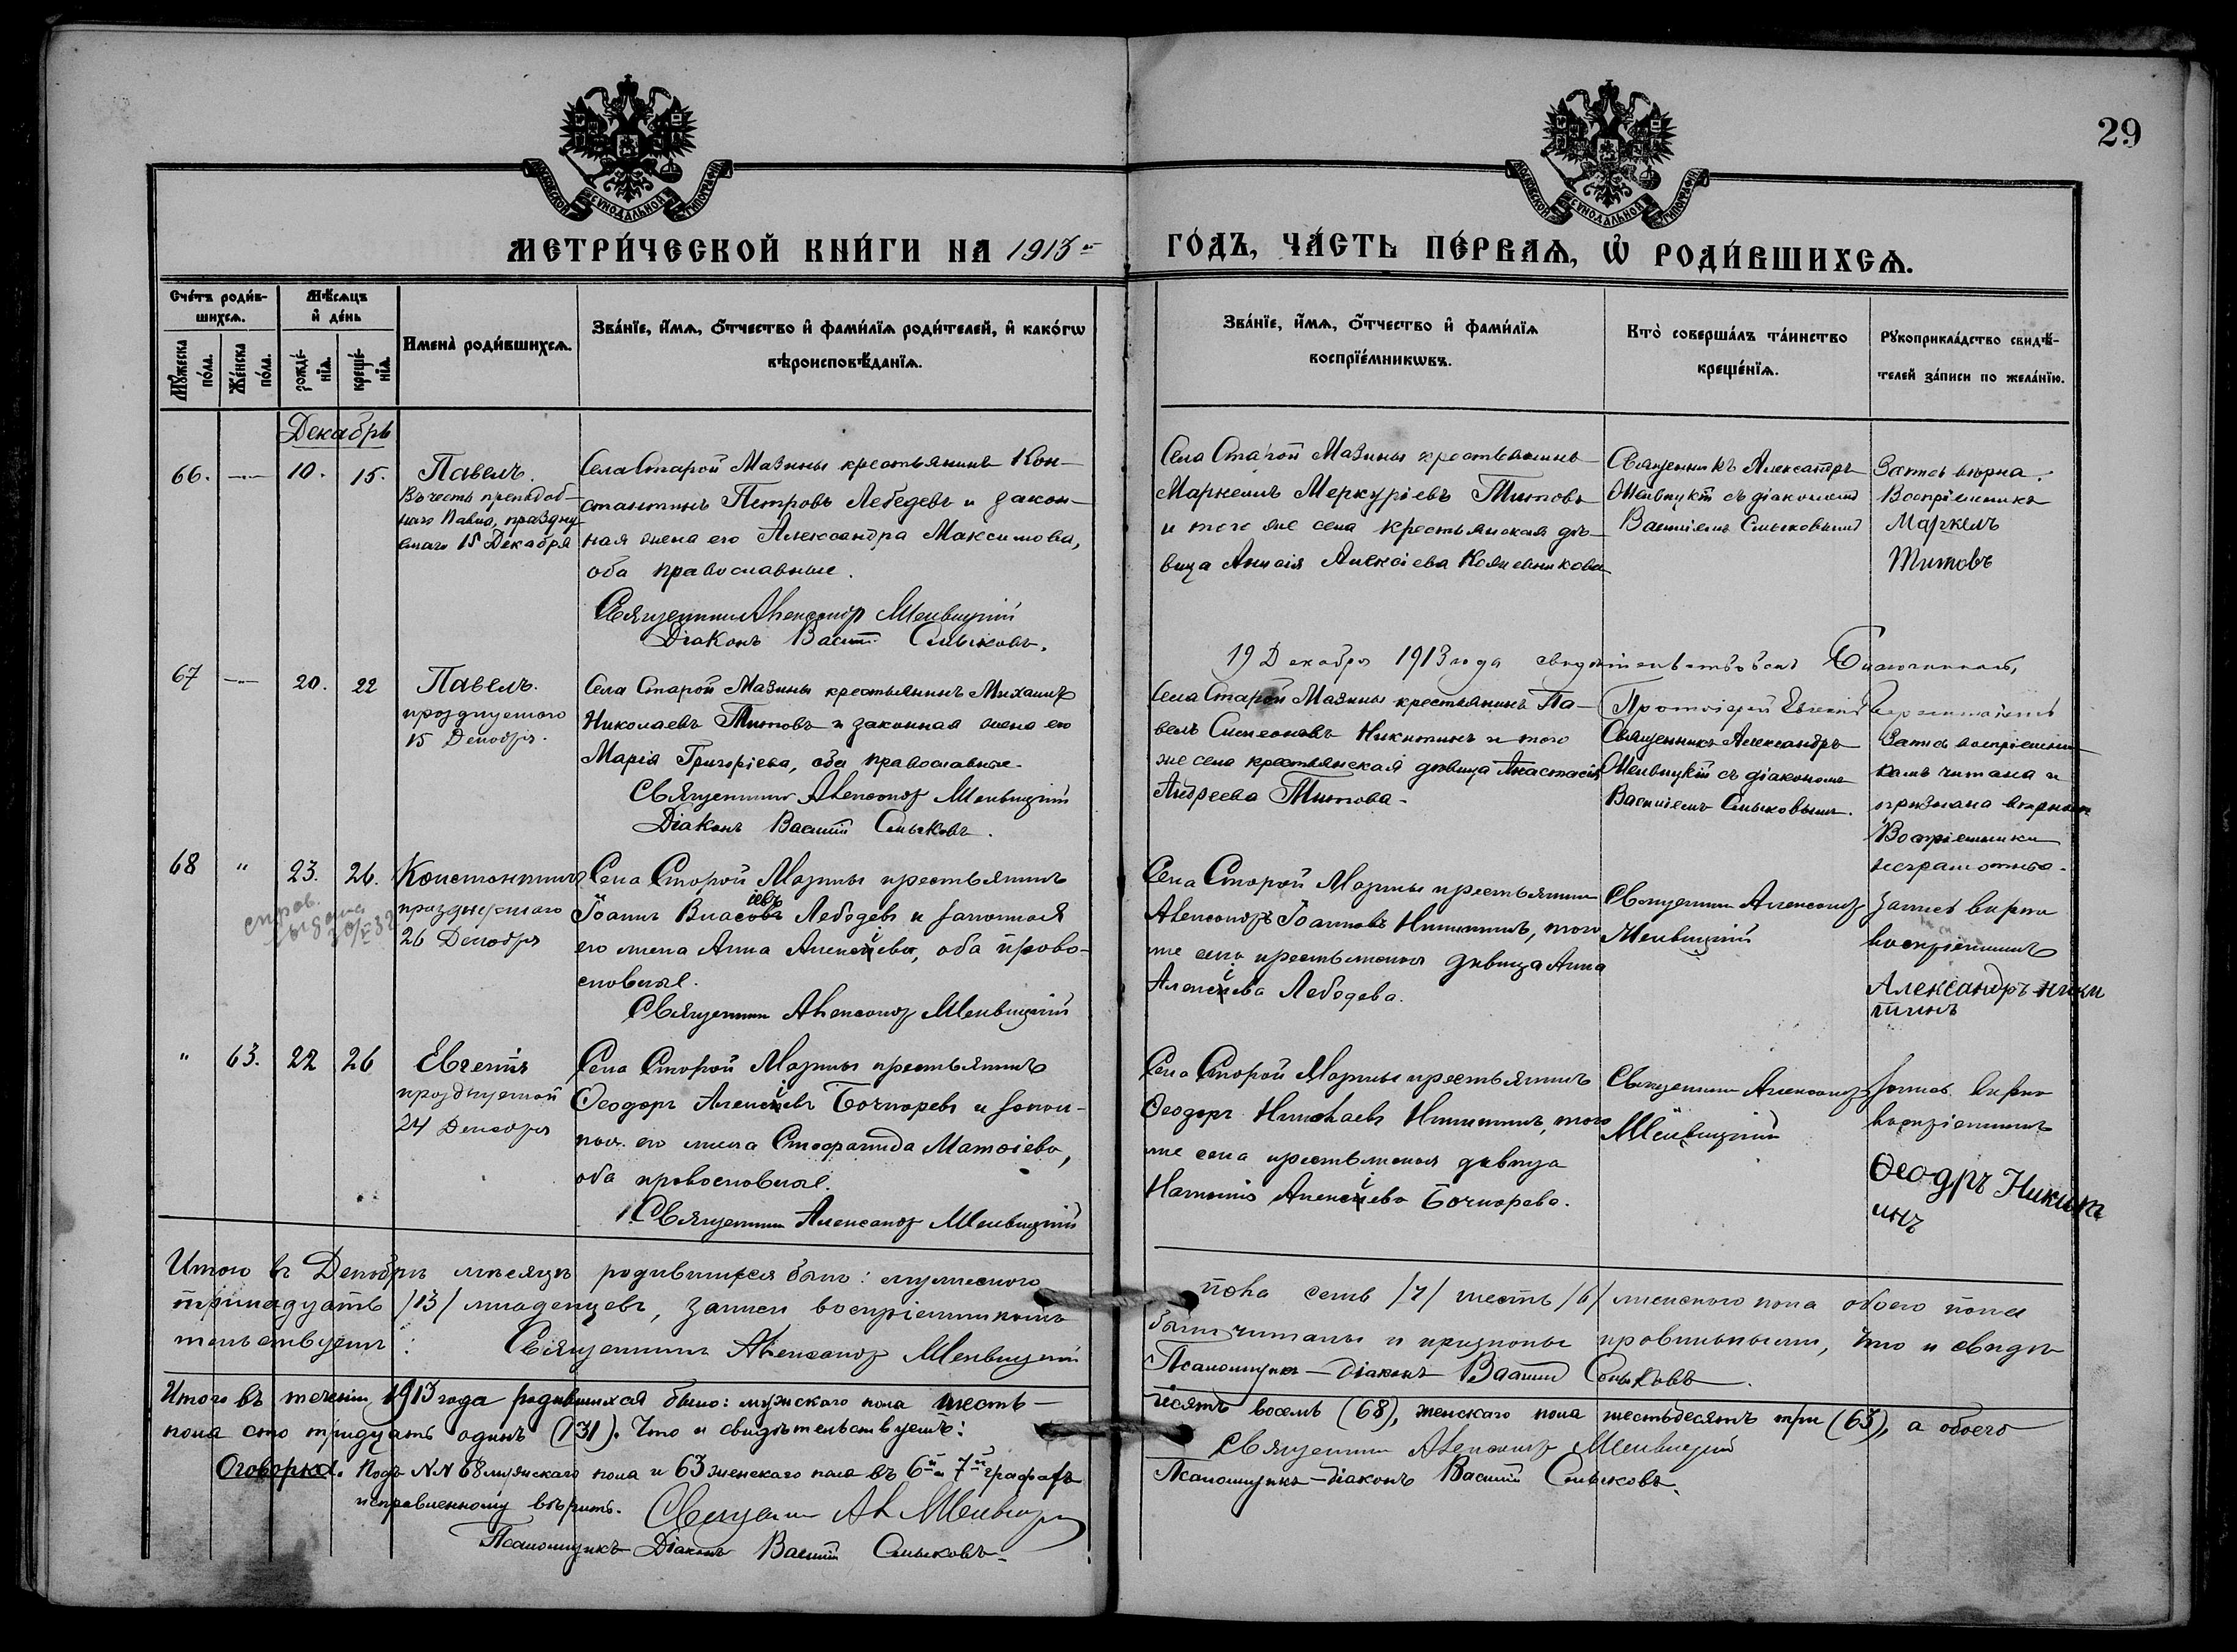 29
МОСКОВСКОЙ СѴНОДАЛЬНОЙ ТИПОГРАФІИ
МОСКОВСКОЙ СѴНОДАЛЬНОЙ ТИПОГРАФІИ
МЕТРИ́ЧЕСКОЙ КНИ́ГИ НА 1913й
ГО́ДЪ, ЧА́СТЬ ПЕ́РВАѦ, Ѽ РОДИ́ВШИХСѦ.
Сче́тъ роди́в-
шихсѧ.
Мѣ́сѧцъ
и҆ де́нь
Мꙋ́жеска по́ла.
Же́нска по́ла.
рожде́-
нїѧ.
креще́-
нїѧ.
Имена̀ роди́вшихсѧ.
Зва́нїе, и҆́мѧ, ѻ҆́тчество и҆ фами́лїѧ роди́телей, и҆ како́гѡ
вѣроисповѣ́данїѧ.
Зва́нїе, и҆́мѧ, ѻ҆́тчество и҆ фами́лїѧ
воспрїе́мникѡвъ.
Кто̀ соверша́лъ та́инство
креще́нїѧ.
Рꙋкоприкла́дство свидѣ́-
телей за́писи по жела́нїю.
Декабрь
66. — 10. 15. Павелъ.
Въ честь преподоб-
наго Павла, праздну
емаго 15 Декабря
Села Старой Мазины крестьянинъ Кон-
стантинъ Петровъ Лебедевъ и закон-
ная жена его Александра Максимова,
оба православные.
Священникъ Александр
Діаконъ Василій Смыковъ.
Села Старой Мазины крестьянинъ
Маркеллъ Меркуріевъ Титовъ
и того же села крестьянская дѣ-
вица Анисія Алексіева
Священникъ Александръ
съ діакономъ
Василіемъ Смыковымъ
Запись вѣрна.
Воспріемникъ
Маркелъ
Титовъ
19 Декабря 1913 года свидѣтельствовалъ
Протоіерей Евгеній
67 — 20. 22 Павелъ.
празднуемаго
15 Декабря.
Села Старой Мазины крестьянинъ Михаилъ
Николаевъ Титовъ и законная жена его
Марія Григоріева, оба православные.
Священникъ Александр
Діаконъ Василій Смыковъ.
Села Старой Мазины крестьянинъ Па-
велъ Симеоновъ Никитинъ и того
же села крестьянская дѣвица Анастасія
Андреева Титова.
Священникъ Александръ
съ діакономъ
Василіемъ Смыковымъ.
Запись воспріемни-
камъ читана и
признана вѣрной
Воспріемники
неграмотны.
68 " 23. 26. Константинъ
празднуемаго
26 Декабря
справ.
выдана
Села Старой Мазины крестьянинъ
Іоаннъ Власовъ іевъ Лебедевъ и законная
его жена Анна Алексіева, оба право-
славные.
Священник Александр
Села Старой Мазины крестьянин
Александръ Іоанновъ Никитинъ, того
же села крестьянская дѣвица Анна
Алексіева Лебедева.
Священник Александр
Запись вѣрна
воспріемникъ
Александръ Ники
тинъ
" 63. 22 26 Евгенія
празднуемой
24 Декабря
Села Старой Мазины крестьянинъ
Ѳеодоръ Алексіевъ Бочкаревъ и закон-
ная его жена Стефанида Матѳіева,
оба православные.
Священник Александр
Села Старой Мазины крестьянинъ
Ѳеодоръ Николаевъ Никитинъ, того
же села крестьянская дѣвица
Наталія Алексіева Бочкарева.
Священник Александр
Запись вѣрна
воспріемникъ
Ѳеодръ Никит
инъ
Итого въ Декабрѣ мѣсяцѣ родившихся было: мужескаго пола семь /7/ шесть /6/ женскаго пола обоего пола
тринадцать /13/ младенцевъ, записи воспріемникамъ были читаны и признаны правильными, что и свидѣ-
тельствуемъ: Священникъ Александр
Псаломщикъ-діаконъ Василій Смыковъ.
Итого въ теченіи 1913 года родившихся было: мужскаго пола шесть-
десятъ восемь (68), женскаго пола шестьдесятъ три (63), а обоего
пола сто тридцать одинъ (131). Что и свидѣтельствуемъ:
Священник Александр
Псаломщикъ-діаконъ Василій Смыковъ.
Оговорка. Подъ №№ 68 мужскаго пола и 63 женскаго пола въ 6й и 7й графахъ
исправленному вѣрить. Священник Ал
Псаломщикъ Діаконъ Василій Смыковъ.